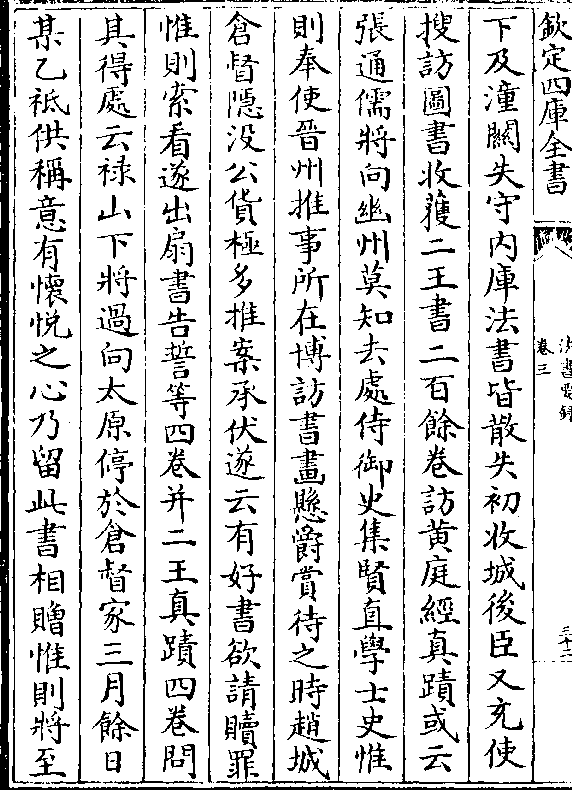 欽定四庫全書
法書要錄
卷三
三十二
下及潼關失守內庫法書皆散失初收城後臣又充使
搜訪圖書收獲二王書二百餘卷訪黄庭經真蹟或云
張通儒將向幽州莫知去處侍御史集賢直學士史惟
則奉使晉州推事所在博訪書畫懸爵賞待之時趙城
倉督隱没公貨極多推案承伏遂云有好書欲請贖罪
惟則索看遂出扇書告誓等四卷并二王真蹟四卷問
其得處云禄山下將過向太原停於倉督家三月餘日
某乙祗供稱意有懷悦之心乃留此書相贈惟則將至